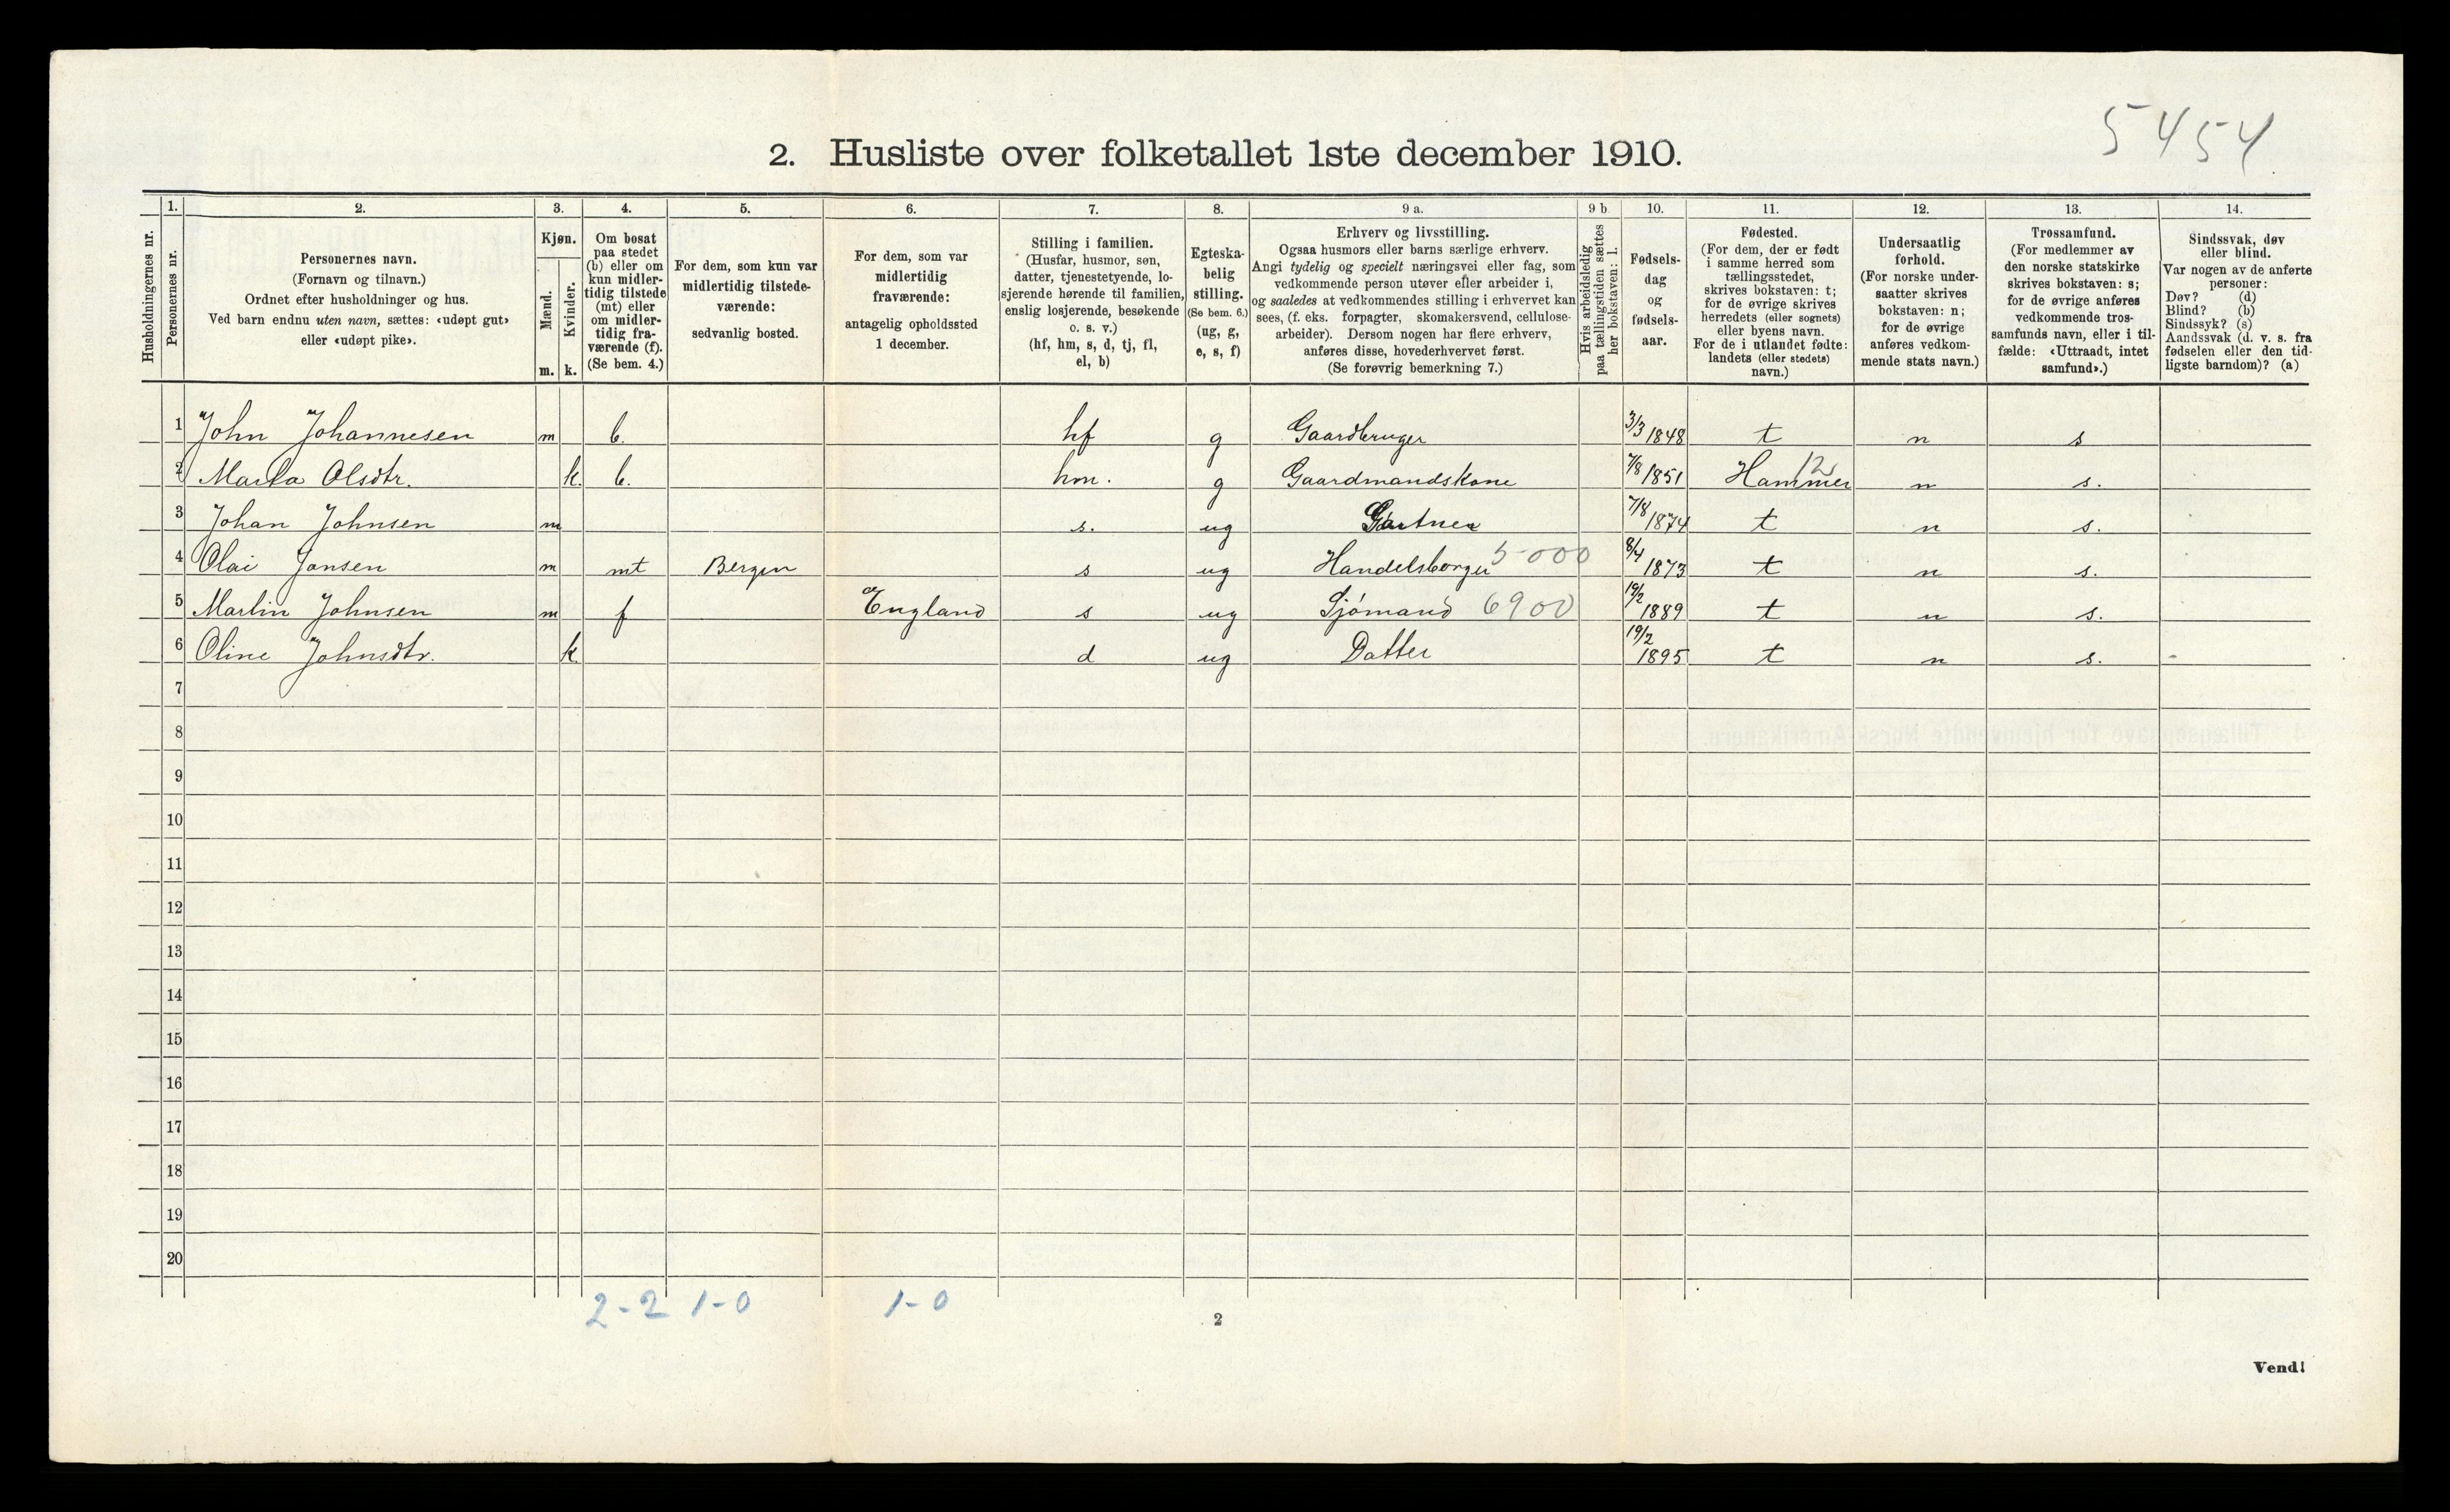 5454
2. Husliste over folketallet 1ste december 1910.
1. 2. 3. 4. 5. 6. 7. 8. 9 a. 9 b 10. 11. 12. 13. 14.
Husholdningernes nr.
Personernes nr.
Personernes navn.
(Fornavn og tilnavn.)
Ordnet efter husholdninger og hus.
Ved barn endnu uten navn, sættes: «udøpt gut»
eller «udøpt pike».
Kjøn.
Mænd.
Kvinder.
m. k.
Om bosat
paa stedet
(b) eller om
kun midler-
tidig tilstede
(mt) eller
om midler-
tidig fra-
værende (f).
(Se bem. 4.)
For dem, som kun var
midlertidig tilstede-
værende:
sedvanlig bosted.
For dem, som var
midlertidig
fraværende:
antagelig opholdssted
1 december.
Stilling i familien.
(Husfar, husmor, søn,
datter, tjenestetyende, lo-
sjerende hørende til familien,
enslig losjerende, besøkende
o. s. v.)
(hf, hm, s, d, tj, fl,
el, b)
Egteska-
belig
stilling.
(Se bem. 6.)
(ug, g,
e, s, f)
Erhverv og livsstilling.
Ogsaa husmors eller barns særlige erhverv.
Angi tydelig og specielt næringsvei eller fag, som
vedkommende person utøver eller arbeider i,
og saaledes at vedkommendes stilling i erhvervet kan
sees, (f. eks. forpagter, skomakersvend, cellulose-
arbeider). Dersom nogen har flere erhverv,
anføres disse, hovederhvervet først.
(Se forøvrig bemerkning 7.)
Hvis arbeidsledig
paa tællingstiden sættes
her bokstaven: l.
Fødsels-
dag
og
fødsels-
aar.
Fødested.
(For dem, der er født
i samme herred som
tællingsstedet,
skrives bokstaven: t;
for de øvrige skrives
herredets (eller sognets)
eller byens navn.
For de i utlandet fødte:
landets (eller stedets)
navn.)
Undersaatlig
forhold.
(For norske under-
saatter skrives
bokstaven: n;
for de øvrige
anføres vedkom-
mende stats navn.)
Trossamfund.
(For medlemmer av
den norske statskirke
skrives bokstaven: s;
for de øvrige anføres
vedkommende tros-
samfunds navn, eller i til-
fælde: «Uttraadt, intet
samfund».)
Sindssvak, døv
eller blind.
Var nogen av de anførte
personer:
Døv? (d)
Blind? (b)
Sindssyk? (s)
Aandssvak (d. v. s. fra
fødselen eller den tid-
ligste barndom)? (a)
1 John Johannesen m b. hf g Gaardbruger 3/3 1848 t n s
2 Marta Olsdtr. k. b. hm. g Gaardmandskone 7/8 1851 Hammer 12 n s.
3 Johan Johnsen m s. ug Gartner 7/8 1874 t n s.
4 Olai Jonsen m mt Bergen s ug Handelsborger 5-000 8/4 1873 t n s.
5 Martin Johnsen m f England s ug Sjómand 6900 1889 t n s.
6 Oline Johnsdtr. k d ug Datter 19/2 1895 t n s. -
7
8
9
10
11
12
13
14
15
16
17
18
19
20
2-2 1-0 1-0
2
Vend!